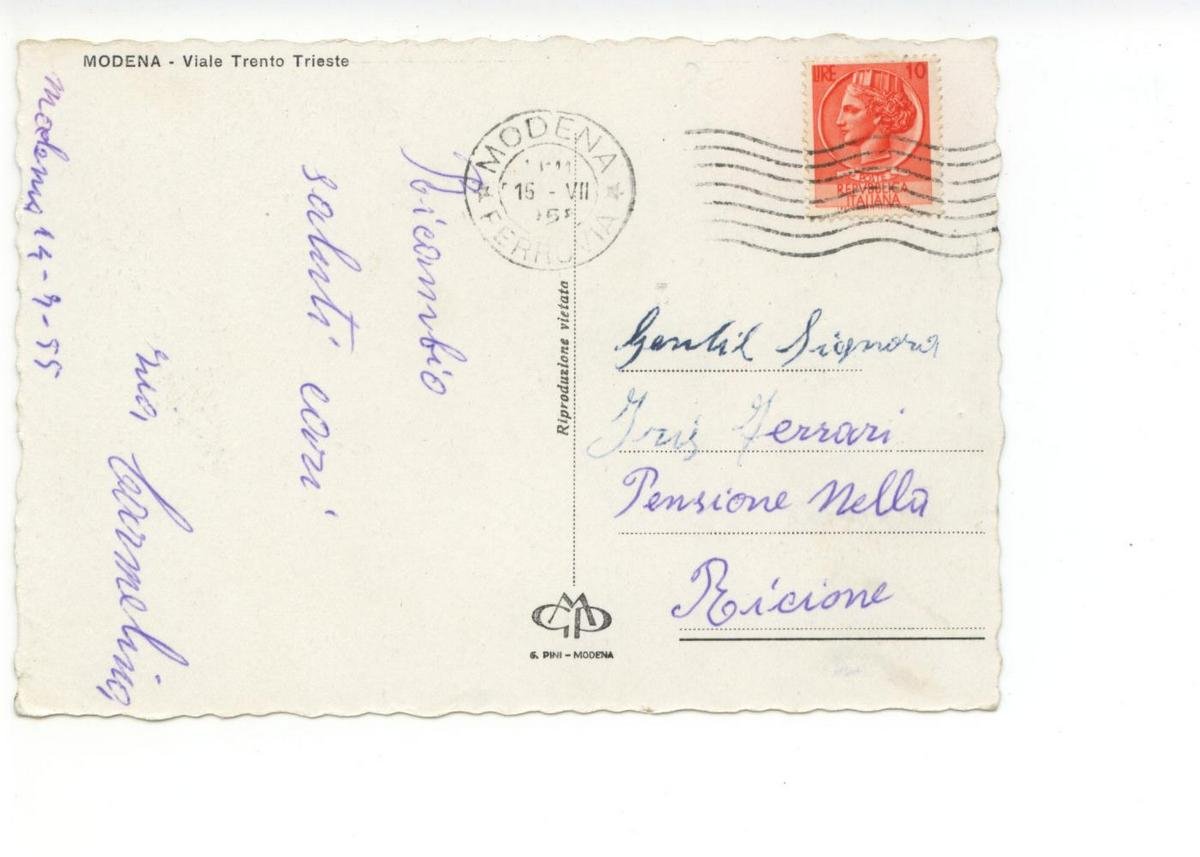 MODENA - Viale Trento Trieste
Modena 14-7-55
Ricambio
saluti cari
Carmelina
MODENA
15 - VII
FERROVIA
LIRE 10
POSTE
REPVBBLICA
ITALIANA
Riproduzione vietata
Gentil Signora
Iris Ferrari
Pensione Nella
Riccione
G. PINI - MODENA